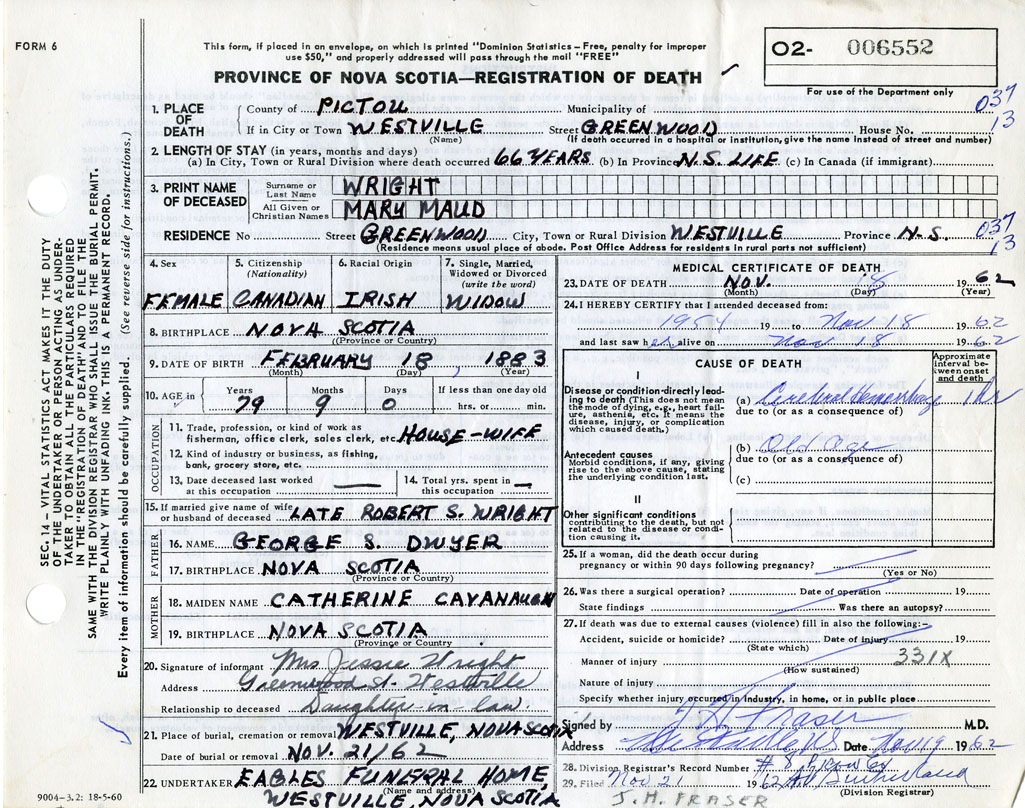 FORM 6
This form, if placed in an envelope, on which is printed "Dominion Statistics – Free, penalty for improper
use $50," and properly addressed will pass through the mail "FREE"
PROVINCE OF NOVA SCOTIA—REGISTRATION OF DEATH
02- 006552
For use of the Department only
037
13
1. PLACE OF DEATH
County of PICTOU Municipality of
If in City or Town WESTVILLE Street GREENWOOD House No.
(Name) (If death occurred in a hospital or institution, give the name instead of street and number)
2. LENGTH OF STAY (in years, months and days)
(a) In City, Town or Rural Division where death occurred 66 YEARS (b) In Province N.S. LIFE (c) In Canada (if immigrant)
3. PRINT NAME OF DECEASED
Surname or Last Name WRIGHT
All Given or Christian Names MARY MAUD
RESIDENCE No Street GREENWOOD City, Town or Rural Division WESTVILLE Province N.S. 037
13
(Residence means usual place of abode. Post Office Address for residents in rural parts not sufficient)
4. Sex FEMALE
5. Citizenship (Nationality) CANADIAN
6. Racial Origin IRISH
7. Single, Married, Widowed or Divorced (write the word) WIDOW
8. BIRTHPLACE NOVA SCOTIA
(Province or Country)
9. DATE OF BIRTH FEBRUARY 18, 1883
(Month) (Day) (Year)
10. AGE in Years 79 Months 9 Days 0 If less than one day old hrs. or min.
OCCUPATION
11. Trade, profession, or kind of work as
fisherman, office clerk, sales clerk, etc. HOUSE-WIFE
12. Kind of industry or business, as fishing,
bank, grocery store, etc.
13. Date deceased last worked at this occupation —
14. Total yrs. spent in this occupation —
15. If married give name of wife
or husband of deceased LATE ROBERT S. WRIGHT
FATHER
16. NAME GEORGE S. DWYER
17. BIRTHPLACE NOVA SCOTIA
(Province or Country)
MOTHER
18. MAIDEN NAME CATHERINE CAVANAUGH
19. BIRTHPLACE NOVA SCOTIA
(Province or Country
20. Signature of informant Mrs Jessie Wright
Address Greenwood St. Westville
Relationship to deceased Daughter in law.
21. Place of burial, cremation or removal WESTVILLE, NOVA SCOTIA
Date of burial or removal NOV. 21/62
22. UNDERTAKER EAGLES FUNERAL HOME,
(Name and address)
WESTVILLE, NOVA SCOTIA
9004-3.2: 18-5-60
SEC. 14 – VITAL STATISTICS ACT MAKES IT THE DUTY
OF THE UNDERTAKER OR PERSON ACTING AS UNDER-
TAKER TO OBTAIN ALL THE PARTICULARS REQUIRED
IN THE "REGISTRATION OF DEATH" AND TO FILE THE
SAME WITH THE DIVISION REGISTRAR WHO SHALL ISSUE THE BURIAL PERMIT.
WRITE PLAINLY WITH UNFADING INK. THIS IS A PERMANENT RECORD.
Every item of information should be carefully supplied. (See reverse side for instructions.)
MEDICAL CERTIFICATE OF DEATH
23. DATE OF DEATH NOV. 18 1962
(Month) (Day) (Year)
24. I HEREBY CERTIFY that I attended deceased from:
1954 19 to Nov 18 1962
and last saw her alive on Nov 18 1962
CAUSE OF DEATH
Approximate interval between onset and death
I
Disease or condition directly leading to death (This does not mean
the mode of dying, e.g., heart failure, asthenia, etc. It means the
disease, injury, or complication which caused death.)
(a) Cerebral Hemorrhage 1 hr
due to (or as a consequence of)
Antecedent causes
Morbid conditions, if any, giving rise to the above cause, stating
the underlying condition last.
(b) Old Age
due to (or as a consequence of)
(c)
II
Other significant conditions
contributing to the death, but not related to the disease or condition causing it.
25. If a woman, did the death occur during
pregnancy or within 90 days following pregnancy?
(Yes or No)
26. Was there a surgical operation? Date of operation 19
State findings Was there an autopsy?
27. If death was due to external causes (violence) fill in also the following:-
Accident, suicide or homicide? Date of injury 19
(State which)
Manner of injury 331X
(How sustained)
Nature of injury
Specify whether injury occurred in industry, in home, or in public place
Signed by J H Fraser M.D.
Address Westville NS Date Nov 19 1962
28. Division Registrar's Record Number # 8
29. Filed Nov 21 1962 Sutherland
(Division Registrar)
J. H. FRASER